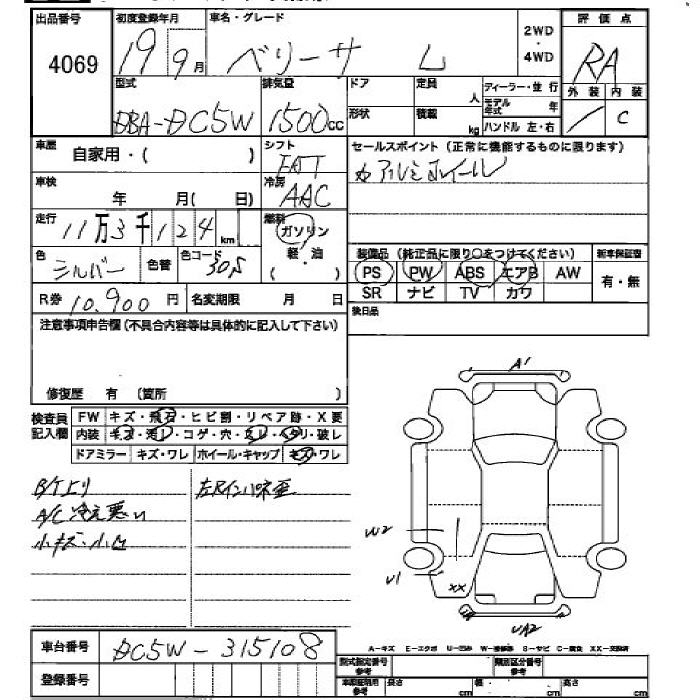 出品番号 初度登録年月 車名・グレード 評価点
4069 19 9月 ベリーサ L 2WD・4WD RA
型式 排気量 ドア 定員 人 ディーラー・並行 外装 内装
DBA-DC5W 1500cc 形状 積載 kg モデル年式 年 ハンドル 左・右 / C
車歴 自家用・( ) シフト セールスポイント(正常に機能するものに限ります)
FAT カアルミホイール
車検 年 月( 日) 冷房 AAC
走行 11万3千124km 燃料 ガソリン
軽・油
( )
色 シルバー 色替 色コード 30S
装備品(純正品に限り○をつけてください) 新車保証書
PS PW ABS エアB AW 有・無
SR ナビ TV カワ
R券 10,900円 名変期限 月 日 後日品
注意事項申告欄(不具合内容等は具体的に記入して下さい)
修復歴 有 (箇所 )
検査員記入欄 FW キズ・飛石・ヒビ割・リペア跡・X要
内装 キズ・汚レ・コゲ・穴・スレ・ヘタリ・破レ
ドアミラー キズ・ワレ ホイール・キャップ キズ・ワレ
B/T上り 左Rインパネ歪
A/C冷え悪い
小キズ・小凹
A1
W2
U1
XX
UA2
車台番号 DC5W-315108
登録番号
A-キズ E-エクボ U-凹み W-補修跡 S-サビ C-腐食 XX-交換済
型式指定番号 参考 類別区分番号 参考
車庫証明用 参考 長さ cm 幅 cm 高さ cm